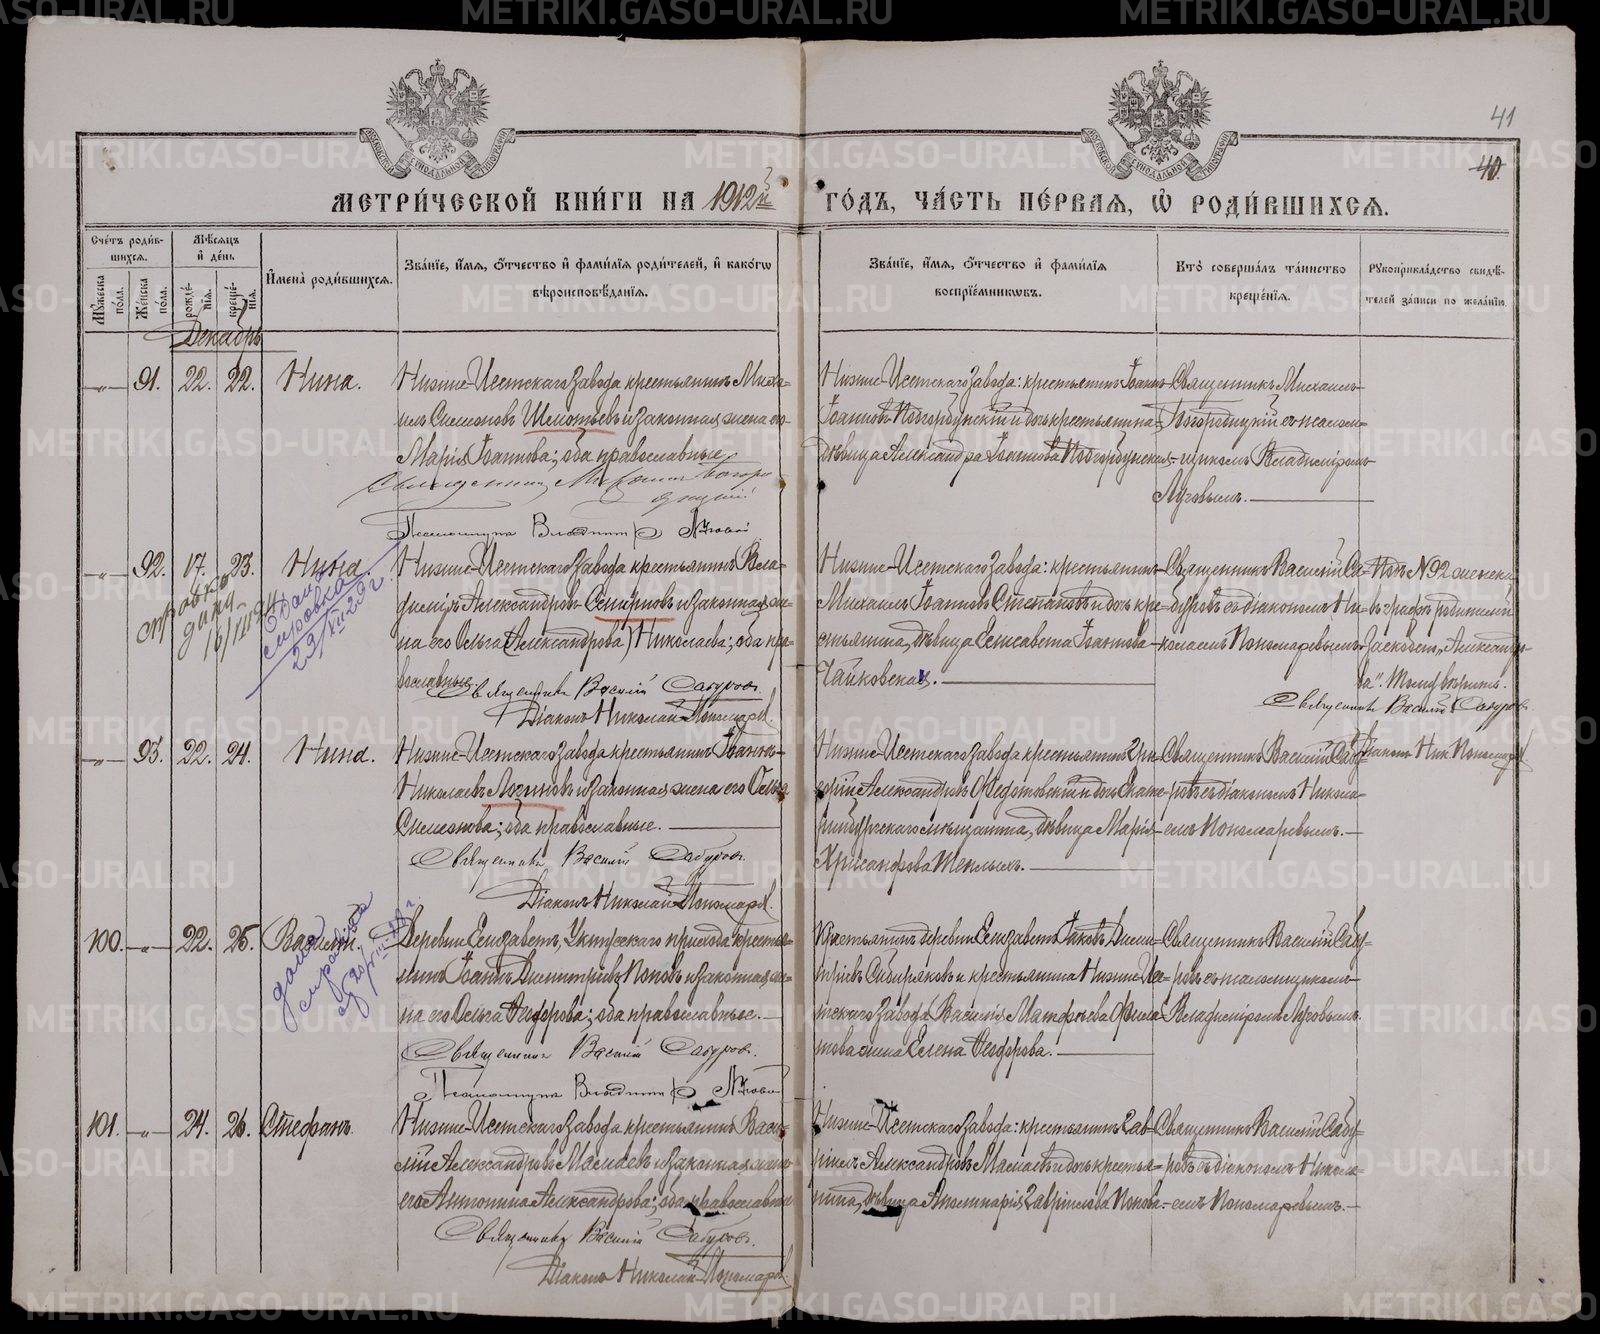 41
40.
МЕТРИ́ЧЕСКОЙ КНИ́ГИ НА 1912й ГО́ДЪ, ЧА́СТЬ ПЕ́РВАЯ, Ѡ҆ РОДИ́ВШИХСЯ.
Сче́тъ роди́вшихся.
Мꙋ́жеска по́ла.
Же́нска по́ла.
Мѣ́сяцъ и҆ де́нь
рожде́нїя.
креще́нїя.
И҆мена̀ роди́вшихся.
Зва́нїе, и҆́мя, ѻ҆́тчество и҆ фами́лїя роди́телей, и҆ како́гѡ
вѣроисповѣ́данїя.
Зва́нїе, и҆́мя, ѻ҆́тчество и҆ фами́лїя
воспрїе́мникѡвъ.
Кто̀ соверша́лъ та́инство
креще́нїя.
Рꙋкоприкла́дство свидѣ́-
телей за́писи по жела́нїю.
Декабрь
-„- 91. 22. 22. Нина.
Нижне-Исетскаго завода крестьянинъ Миха-
илъ Симеоновъ Шемотьевъ и законная жена его
Марія Іоаннова; оба православные.
Священникъ Михаилъ Богоро
дицкій
Псаломщикъ Владиміръ Луговой
Нижне-Исетскаго завода: крестьянинъ Іоаннъ
Іоанновъ Подгорбунскій и дочь крестьянина,
дѣвица Александра Іоаннова Подгорбунская.
Священникъ Михаилъ
Богородицкій съ псалом-
щикомъ Владиміромъ
Луговымъ.
-„- 92. 17. 23. Нина.
справка
дана
16/III 24
Дана
справка
23/XII 29 г.
Нижне-Исетскаго завода крестьянинъ Вла-
диміръ Александровъ Смирновъ и законная же-
на его Ольга (Александрова) Николаева; оба пра-
вославные.
Священникъ Василій Сабуровъ.
Діаконъ Николай Пономарев.
Нижне-Исетскаго завода: крестьянинъ
Михаилъ Іоанновъ Степановъ и дочь кре-
стьянина, дѣвица Елисавета Іоаннова
Чайковская.
Священникъ Василій Са-
буровъ съ діакономъ Ни-
колаемъ Пономаревымъ.
Подъ №92 женска
въ графѣ родителей
въ скобкѣ „Александро-
ва". Тому вѣрить.
Священникъ Василій Сабуровъ.
Діаконъ Ник. Пономарев.
-„- 93. 22. 24. Нина.
Нижне-Исетскаго завода крестьянинъ Іоаннъ
Николаевъ Логиновъ и законная жена его Ольга
Симеонова; оба православные.
Священникъ Василій Сабуровъ.
Діаконъ Николай Пономарев.
Нижне-Исетскаго завода крестьянинъ Гри-
горій Александровъ Федотовскій и дочь Екате-
ринбургскаго мѣщанина, дѣвица Марія
Хрисанфова Теплыхъ.
Священникъ Василій Сабу-
ровъ съ діакономъ Никола-
емъ Пономаревымъ.
100. -„- 22. 25. Василій.
дана
справка
Деревни Елизаветъ, Уктусскаго прихода кресть-
янинъ Іоаннъ Димитріевъ Поповъ и законная же-
на его Ольга Ѳеодорова; оба православные.
Священникъ Василій Сабуровъ.
Псаломщикъ Владиміръ Луговой
Крестьянинъ деревни Елизаветъ Іаковъ Дими-
тріевъ Сибиряковъ и крестьянина Нижне-Исе-
тскаго завода Василія Матфеева Фила-
това жена Елена Ѳеодорова.
Священникъ Василій Сабу-
ровъ съ псаломщикомъ
Владиміромъ Луговымъ.
101. -„- 24. 26. Стефанъ.
Нижне-Исетскаго завода крестьянинъ Васи-
лій Александровъ Мамаевъ и законная жена
его Антонина Александрова; оба православные
Священникъ Василій Сабуровъ.
Діаконъ Николай Пономарев.
Нижне-Исетскаго завода: крестьянинъ Гав-
ріилъ Александровъ Мамаевъ и дочь крестья-
нина, дѣвица Аполинарія Гавриилова Попова.
Священникъ Василій Сабу-
ровъ съ діакономъ Никола-
емъ Пономаревымъ.
METRIKI.GASO-URAL.RU